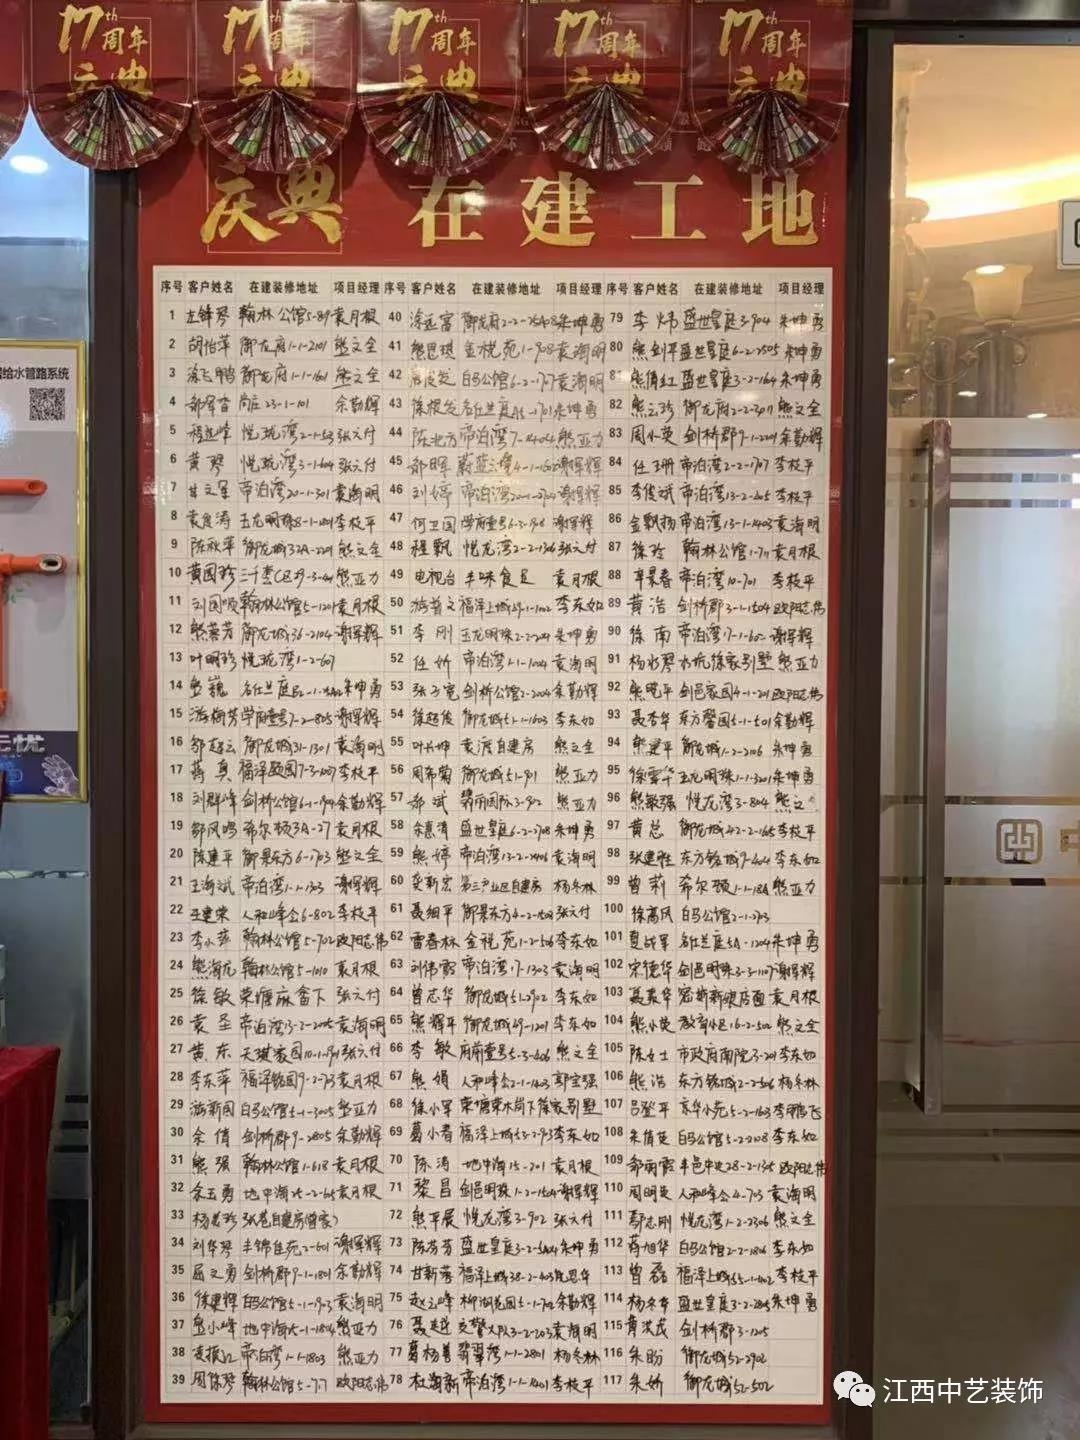 17th周年 17th周年 17th周年 17th周年 17th周年
庆典 庆典 庆典 庆典 庆典
庆典 在建工地
序号 客户姓名 在建装修地址 项目经理 序号 客户姓名 在建装修地址 项目经理 序号 客户姓名 在建装修地址 项目经理
1 翰林公馆5-89 袁月根 40 涂远富 朱坤勇 79 李炜 盛世皇庭3-904 朱坤勇
2 胡怡萍 御龙府1-1-2101 熊文全 41 熊思琪 金悦苑1-908 袁海明 80 熊剑平 盛世皇庭6-2-2505 朱坤勇
3 涂飞鸭 御龙府1-1-1601 熊文全 42 白马公馆6-2-1717 袁海明 81 熊倩红 盛世皇庭3-2-1604 朱坤勇
4 23-1-101 余勤辉 43 徐根发 朱坤勇 82 熊云珍 御龙府2-2-3011 熊文全
5 程远峰 悦珑湾2-1-503 张六付 44 陈北方 帝泊湾7-1404 熊亚力 83 周小英 剑桥郡9-1-2201 余勤辉
6 黄琴 悦珑湾3-1-604 张六付 45 邹晖 谢辉辉 84 任珊 帝泊湾2-2-1707 李枝平
7 甘文军 帝泊湾20-1-301 袁海明 46 刘婷 帝泊湾 谢辉辉 85 李俊斌 帝泊湾13-2-605 李枝平
8 袁良涛 玉龙明珠8-1-1201 李枝平 47 何卫国 学府壹号6-3-906 谢辉辉 86 金飘杨 帝泊湾13-1-1403 袁海明
9 陈秋萍 御龙城32A-2201 熊文全 48 程飘 悦龙湾2-2-1306 张六付 87 徐玲 翰林公馆1-711 袁月根
10 黄国珍 熊亚力 49 电视台 丰味食足 袁月根 88 辛景春 帝泊湾10-701 李枝平
11 刘国顺 翰林公馆5-1201 袁月根 50 福泽上城29-1-1102 李东如 89 黄浩 剑桥郡3-1-1504 欧阳志伟
12 熊慕芳 御龙城36-2104 谢辉辉 51 李刚 玉龙明珠2-2-201 朱坤勇 90 徐南 帝泊湾17-1-602 谢辉辉
13 叶明珍 悦珑湾1-2-607 52 任娇 帝泊湾1-1-1004 袁海明 91 杨水琴 徐家别墅 熊亚力
14 熊巍 朱坤勇 53 剑桥公馆2-2004 余勤辉 92 熊晓平 剑邑家园4-1-201 欧阳志伟
15 游梅芳 学府壹号7-2-805 谢辉辉 54 徐超俊 御龙城51-1-1603 李东如 93 聂杏华 东方馨园5-1-501 余勤辉
16 邹超云 御龙城31-1301 袁海明 55 叶长坤 袁渡自建房 熊文全 94 熊建平 御龙城1-2-2106 朱坤勇
17 蒋真 福泽颐园7-3-607 李枝平 56 周希菊 御龙城51-911 熊亚力 95 徐雪华 玉龙明珠1-1-3201 朱坤勇
18 刘群峰 剑桥公馆6-1-1904 余勤辉 57 邹斌 翡丽国际3-902 熊亚力 96 熊敏强 悦龙湾3-804 熊文
19 邹风鸣 希尔顿3A-27 袁月根 58 余惠清 盛世皇庭6-2-2708 朱坤勇 97 黄总 御龙城42-2-1605 李枝平
20 陈建平 御景东方6-1703 熊文全 59 熊婷 帝泊湾13-2-1406 袁海明 98 张建胜 东方铭城9-604 李东如
21 王海斌 帝泊湾1-1-1303 谢辉辉 60 第三产业区自建房 杨冬林 99 曾莉 希尔顿1-1-18A 熊亚力
22 王建荣 人和峰会6-802 李枝平 61 聂细平 御景东方4-2-1508 张六付 100 徐高风 白马公馆2-1-2703
23 李小萍 翰林公馆5-702 欧阳志伟 62 雷春林 金悦苑1-2-506 李东如 101 夏战军 朱坤勇
24 熊海龙 翰林公馆5-1010 袁月根 63 刘伟霞 帝泊湾17-1303 袁海明 102 宋德华 剑邑明珠3-3-1107 谢辉辉
25 徐敏 荣塘麻畬下 张六付 64 曾志华 御龙城51-2902 李东如 103 袁月根
26 袁圣 帝泊湾13-2-2005 袁海明 65 熊辉平 御龙城49-1201 李东如 104 熊小英 教育小区16-2-502 熊文全
27 黄东 天琪家园10-1-901 张六付 66 李敏 府前壹号5-3-406 熊文全 105 陈女士 市政府南院3-201 李东如
28 李东萍 福泽铭园9-2-703 袁月根 67 熊娟 人和峰会2-1-1403 郭宝强 106 熊浩 东方铭城2-2-506 杨冬林
29 游新园 白马公馆5-1-3005 熊亚力 68 徐小军 荣塘荣水岗下徐家别墅 107 吕登平 京华小苑5-2-1603 李鹏飞
30 余倩 剑桥郡9-2805 余勤辉 69 葛小春 福泽上城53-2-903 李东如 108 朱倩英 白马公馆5-2-2108 李东如
31 熊强 翰林公馆1-618 袁月根 70 陈涛 地中海15-201 袁月根 109 邹雨霞 丰邑中央28-2-1305 欧阳志伟
32 余五勇 地中海25-2-605 袁月根 71 黎昌 剑邑明珠1-2-1504 谢辉辉 110 周明英 人和峰会4-703 袁海明
33 张巷自建房(曾家) 72 熊平展 悦龙湾3-902 张六付 111 鄢志刚 悦龙湾1-2-2306 熊文全
34 刘华琴 丰锦佳苑2-601 谢辉辉 73 陈芳芳 盛世皇庭3-2-504 朱坤勇 112 蒋旭华 白马公馆2-2-1806 李东如
35 屈义勇 剑桥郡9-1-1801 余勤辉 74 甘新落 福泽上城38-2-403 113 曾磊 福泽上城55-1-602 李枝平
36 徐建辉 白马公馆5-1-1703 袁海明 75 赵云峰 柳湖花园5-1-702 余勤辉 114 杨冬冬 盛世皇庭3-2-2805 朱坤勇
37 熊小峰 地中海25-1-1804 熊亚力 76 交警大队3-2-203 袁海明 115 黄洪茂 剑桥郡3-1205
38 袁振江 帝泊湾1-1-1803 熊亚力 77 葛杨美 翡翠湾1-1-2801 杨冬林 116 朱盼 御龙城52-2902
39 周保琴 翰林公馆5-717 欧阳志伟 78 杜海新 帝泊湾1-1-1401 李枝平 117 朱娇 御龙城52-502
给水管路系统
无忧
中
江西中艺装饰